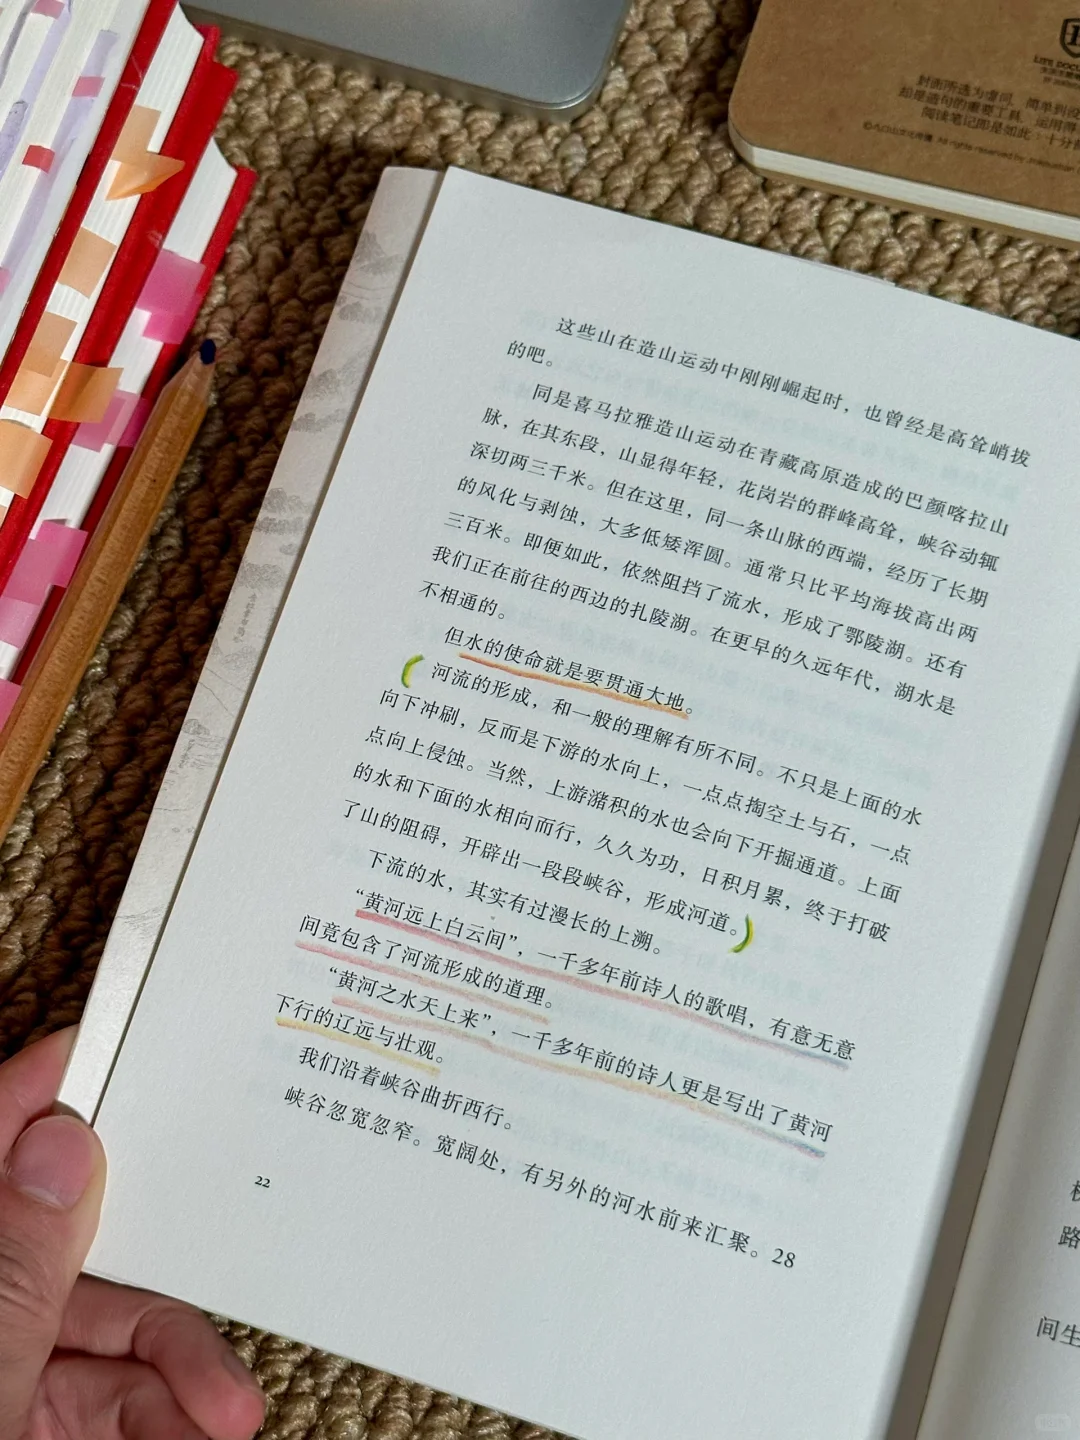 封面所选为虚词，简单到没
却是造句的重要工具，运用得
阅读笔记即是如此：十分
All rights reserved by
这些山在造山运动中刚刚崛起时，也曾经是高耸峭拔
的吧。
同是喜马拉雅造山运动在青藏高原造成的巴颜喀拉山
脉，在其东段，山显得年轻，花岗岩的群峰高耸，峡谷动辄
深切两三千米。但在这里，同一条山脉的西端，经历了长期
的风化与剥蚀，大多低矮浑圆。通常只比平均海拔高出两
三百米。即便如此，依然阻挡了流水，形成了鄂陵湖。还有
我们正在前往的西边的扎陵湖。在更早的久远年代，湖水是
不相通的。
但水的使命就是要贯通大地。
河流的形成，和一般的理解有所不同。不只是上面的水
向下冲刷，反而是下游的水向上，一点点掏空土与石，一点
点向上侵蚀。当然，上游潴积的水也会向下开掘通道。上面
的水和下面的水相向而行，久久为功，日积月累，终于打破
了山的阻碍，开辟出一段段峡谷，形成河道。
下流的水，其实有过漫长的上溯。
“黄河远上白云间”，一千多年前诗人的歌唱，有意无意
间竟包含了河流形成的道理。
“黄河之水天上来”，一千多年前的诗人更是写出了黄河
下行的辽远与壮观。
我们沿着峡谷曲折西行。
峡谷忽宽忽窄。宽阔处，有另外的河水前来汇聚。28
22
路
间生